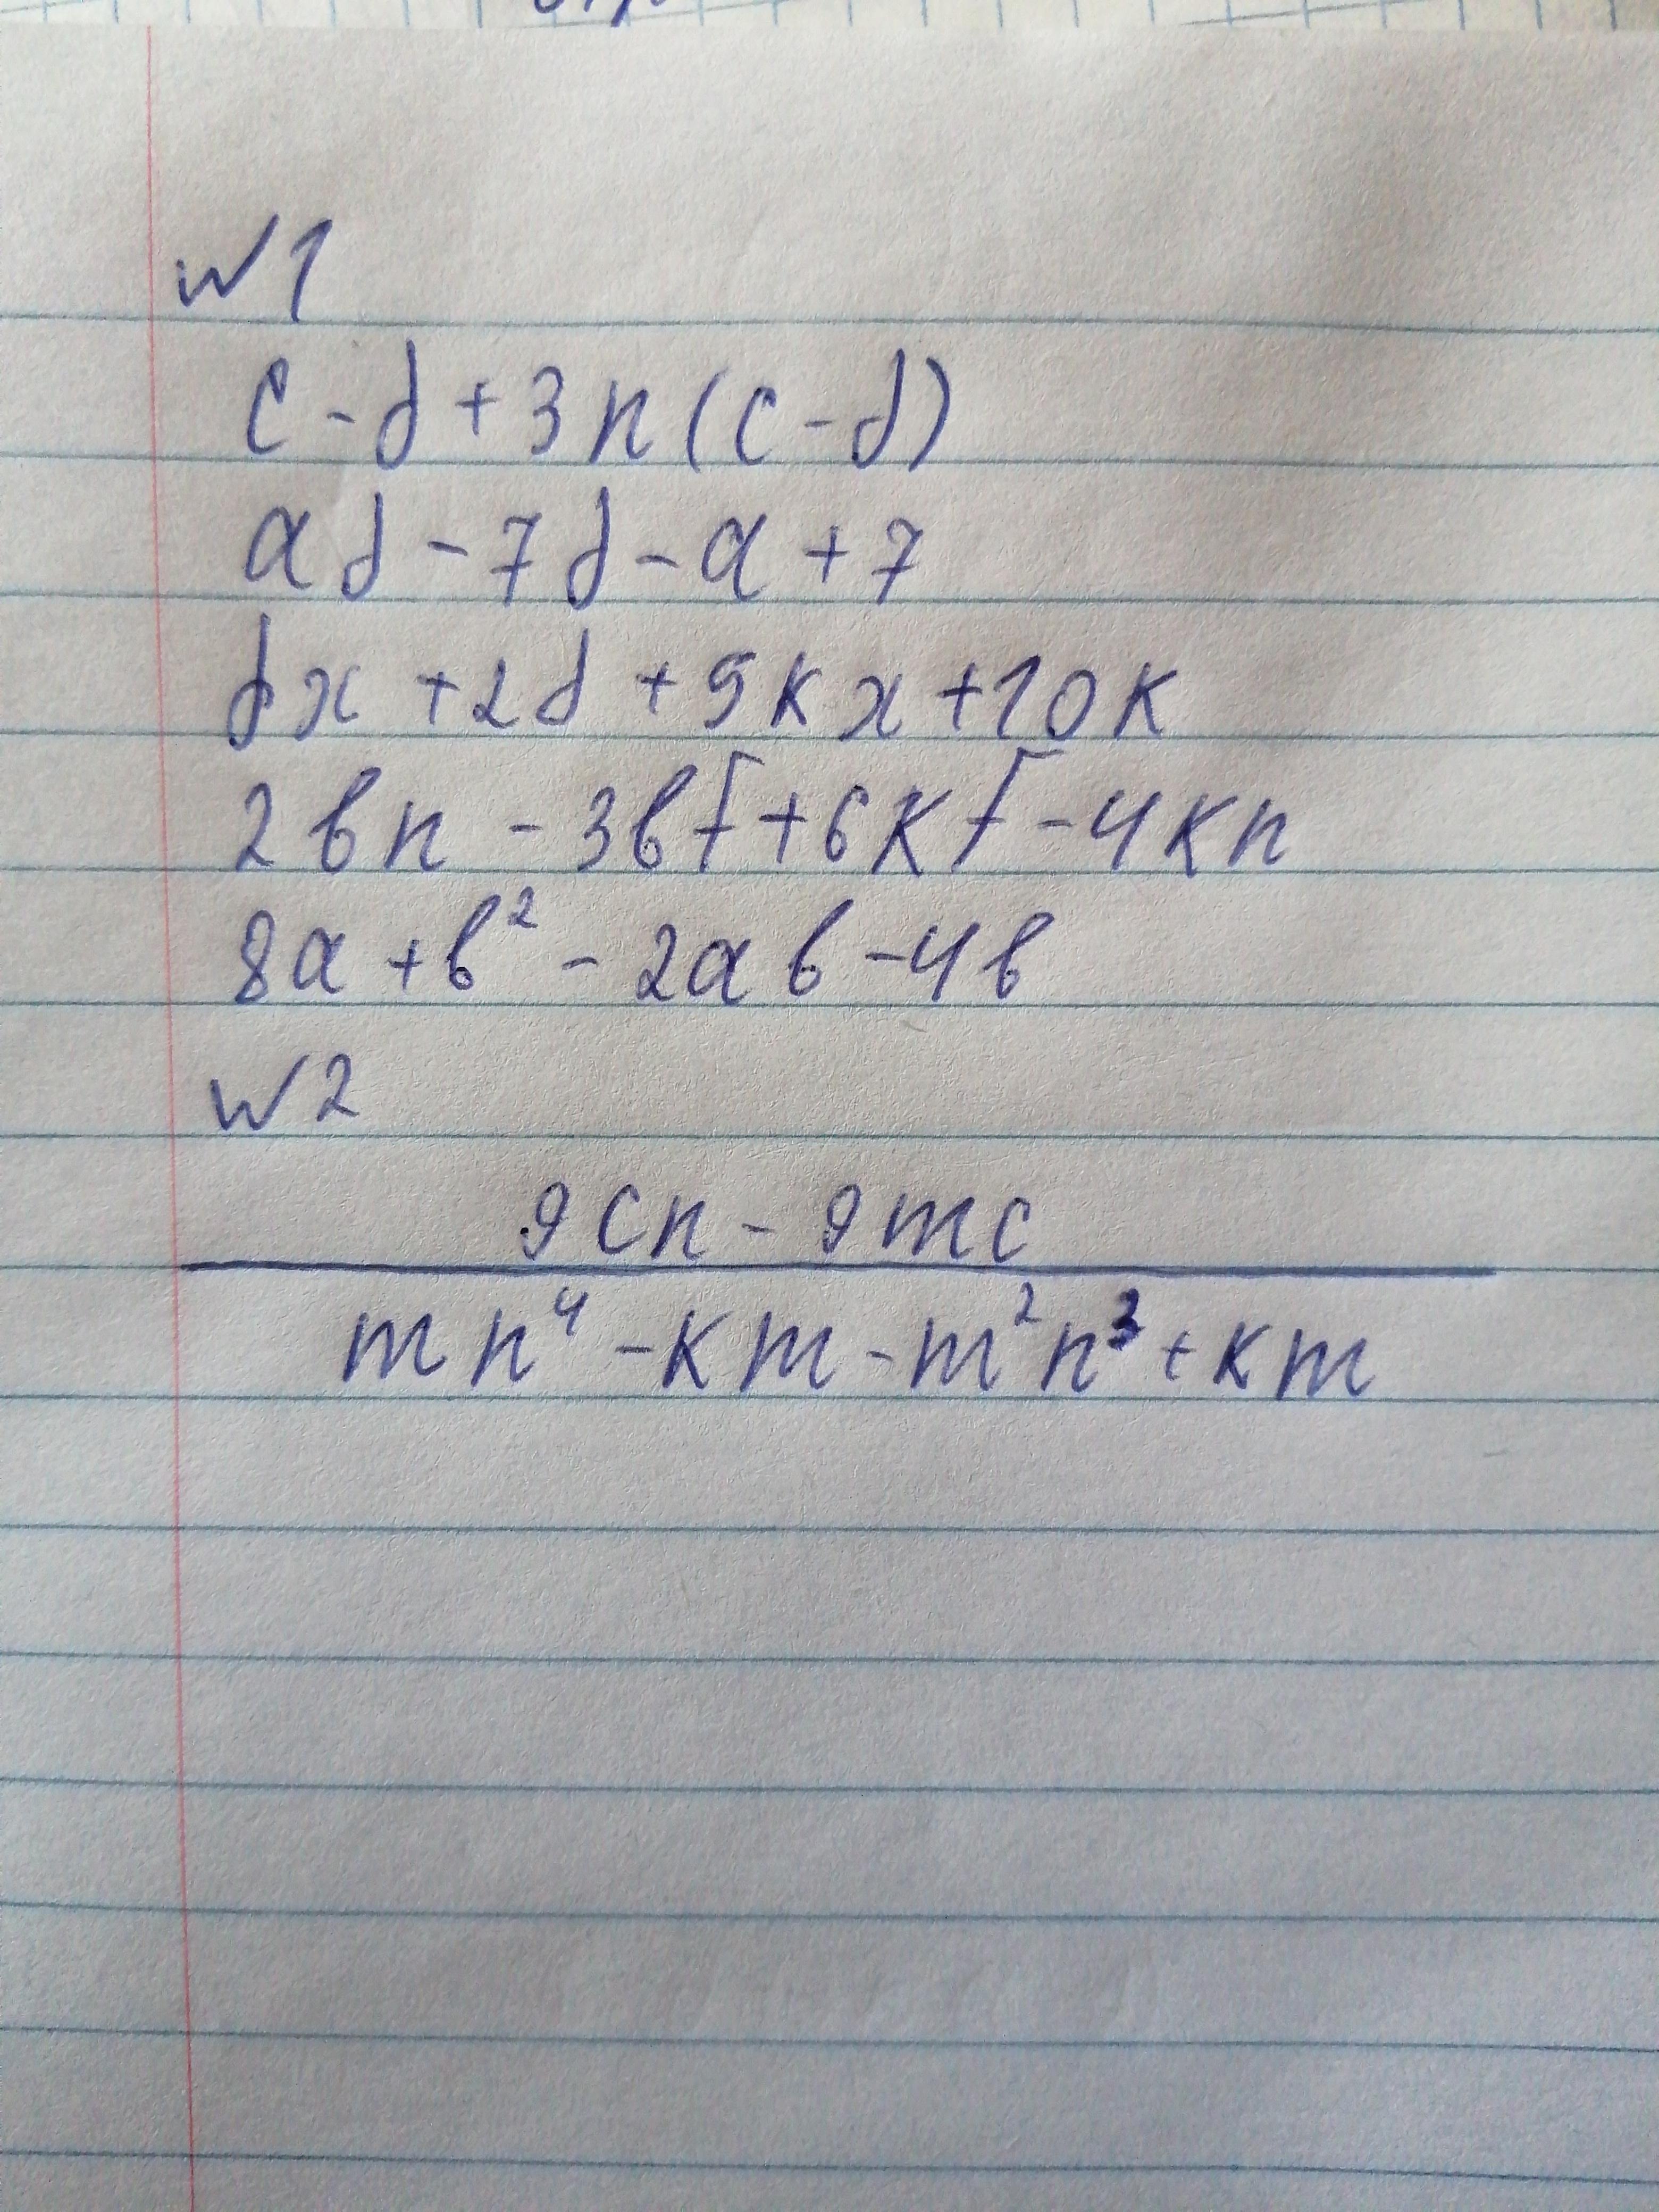 №1
c - d + 3n(c - d)
ad - 7d - a + 7
dx + 2d + 5kx + 10k
2bn - 3bf + 6kf - 4kn
8a + b² - 2ab - 4b
№2
9cn - 9mc
mn⁴ - km - m²n³ + km